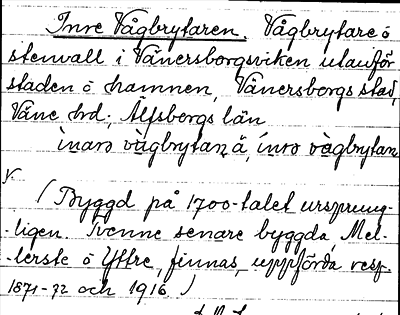 Inre Vågbrytaren. Vågbrytare o
stenvall i Vänersborgsviken utanför
staden o hamnen, Vänersborgs stad,
Väne hd; Älfsborgs län
v
(Byggd på 1700-talet ursprung-
-ligen. Tvenne senare byggda, Mel-
-lerste o Yttre, finnas, uppförda resp.
1871-72 och 1916)